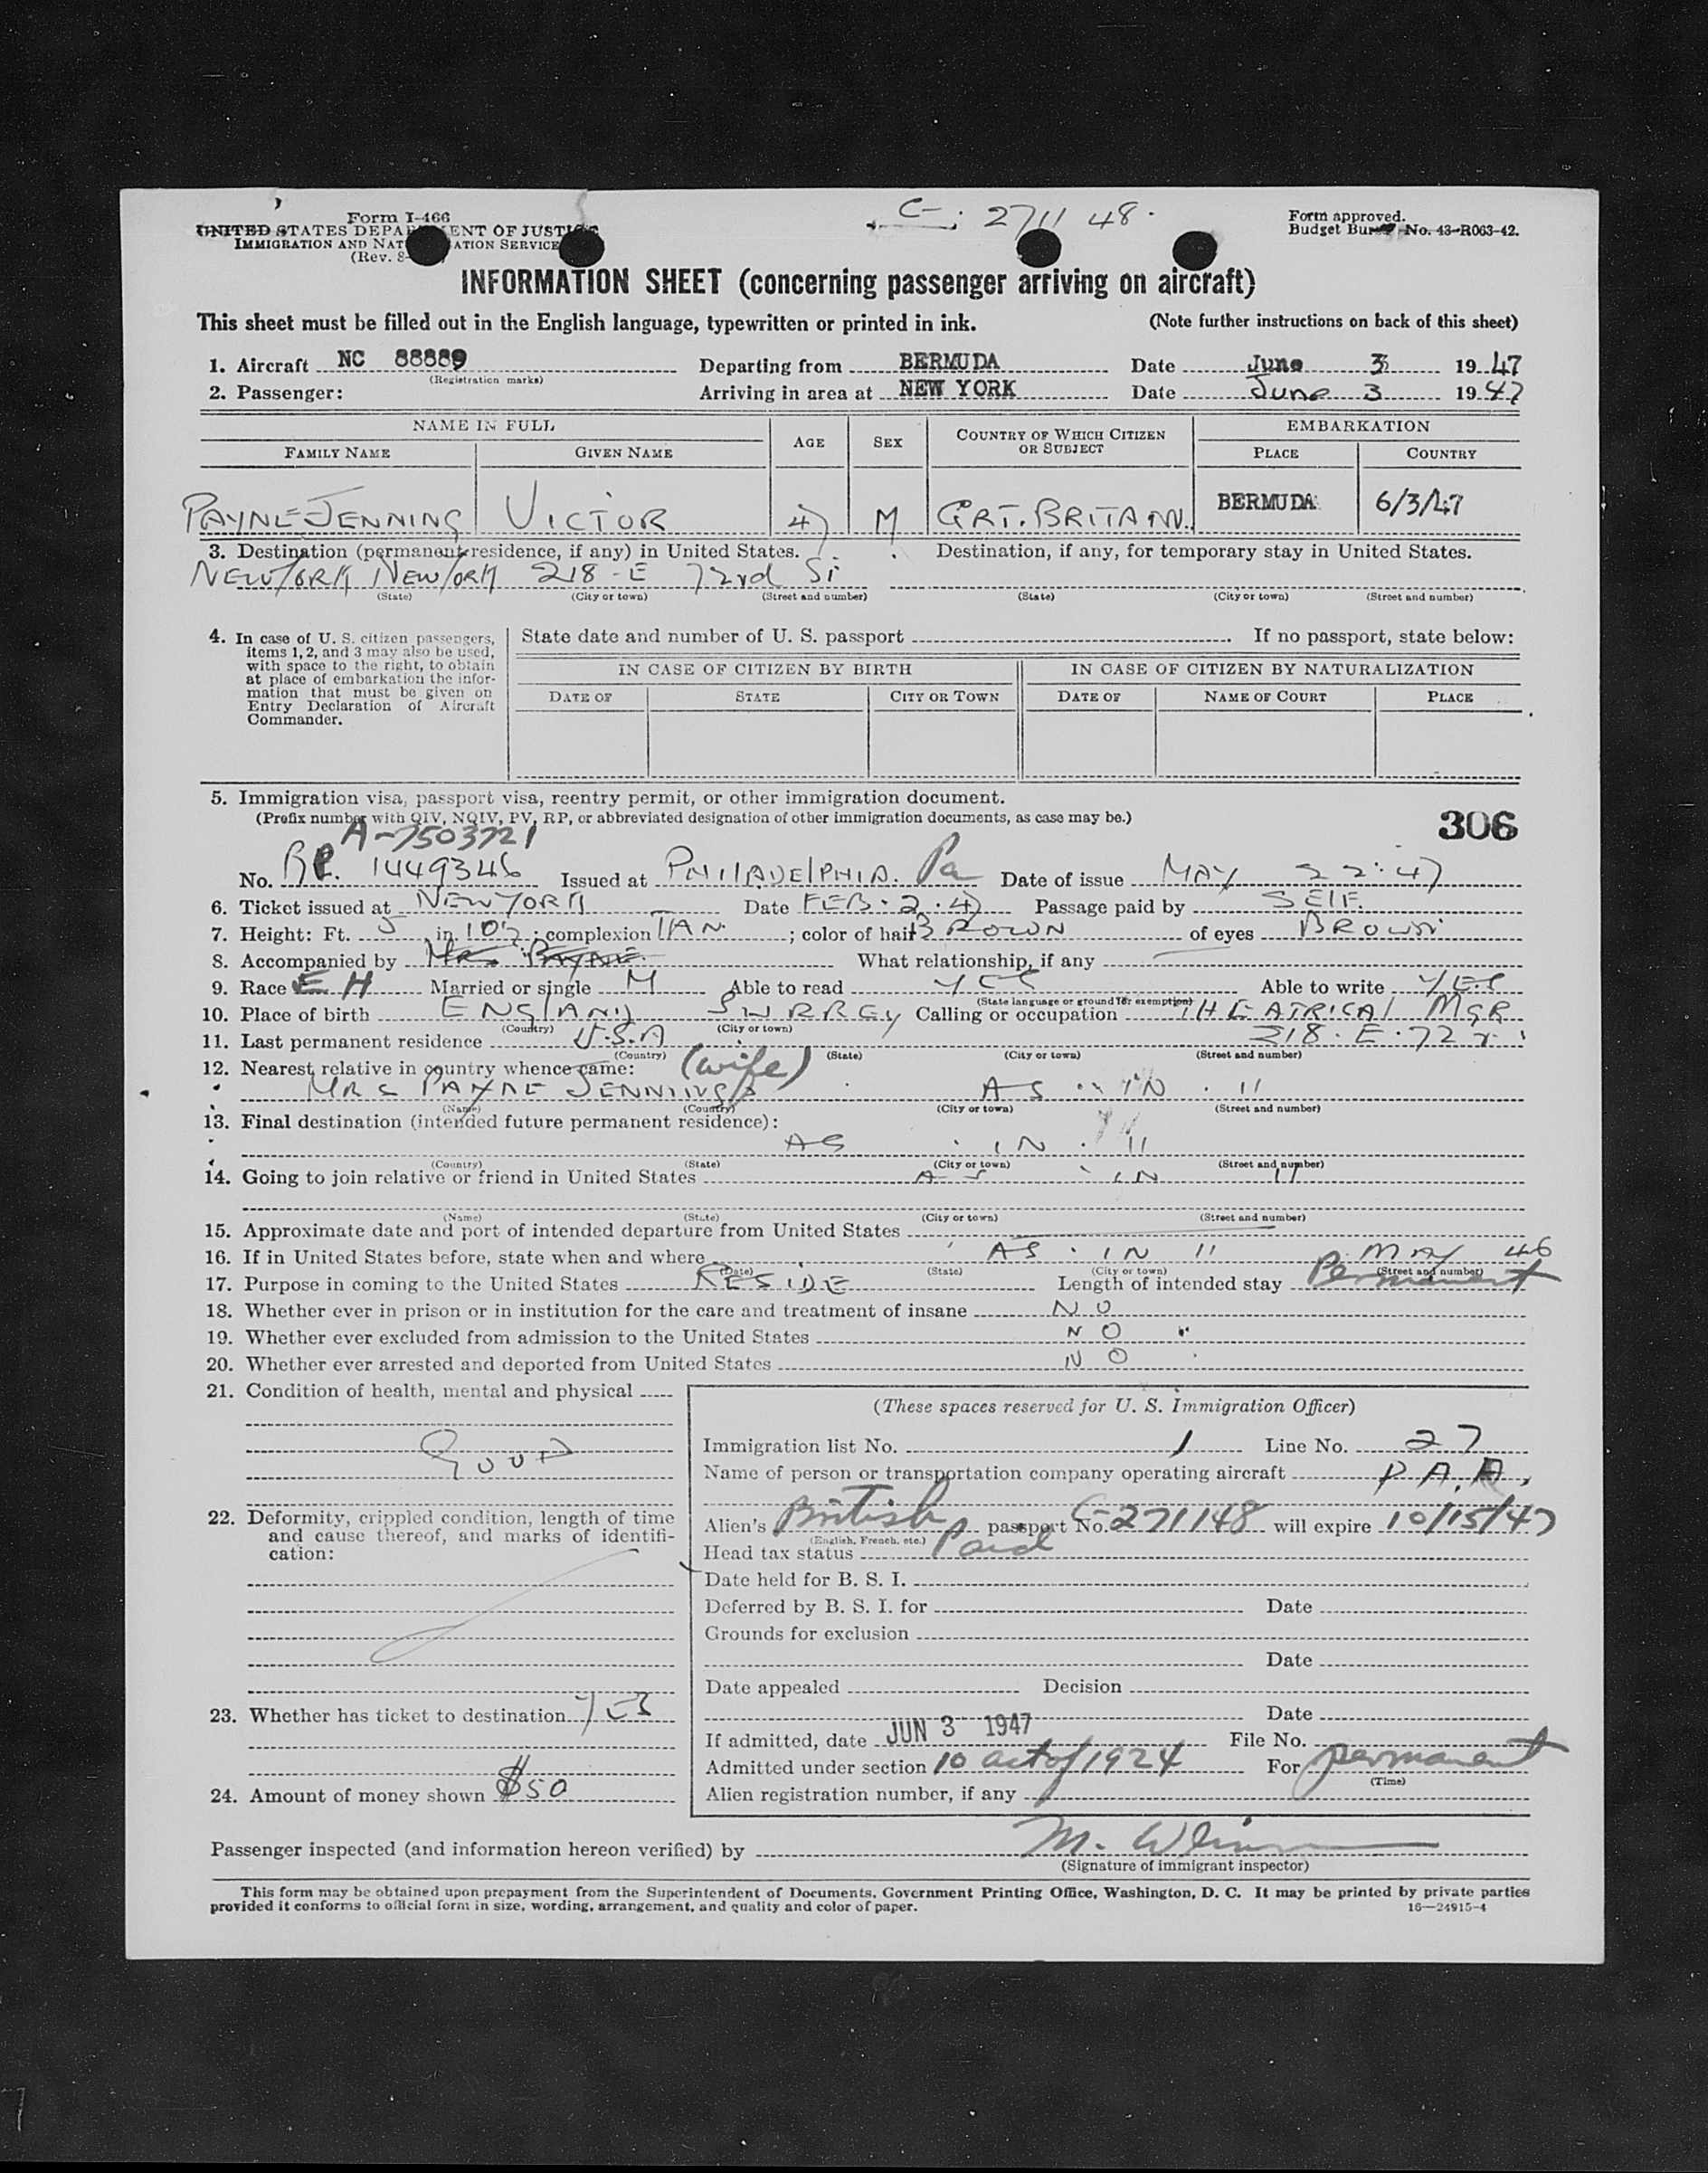 C-: 2711 48.
Form I-466
UNITED STATES DEPARTMENT OF JUSTICE
IMMIGRATION AND NATURALIZATION SERVICE
(Rev. 8-
Form approved.
Budget Bureau No. 43-R063-42.
INFORMATION SHEET (concerning passenger arriving on aircraft)
This sheet must be filled out in the English language, typewritten or printed in ink. (Note further instructions on back of this sheet)
1. Aircraft NC 88889 Departing from BERMUDA Date June 3 1947
(Registration marks)
2. Passenger: Arriving in area at NEW YORK Date June 3 1947
NAME IN FULL AGE SEX COUNTRY OF WHICH CITIZEN OR SUBJECT EMBARKATION
FAMILY NAME GIVEN NAME PLACE COUNTRY
PAYNE-JENNING VICTOR 47 M GRT. BRITAIN. BERMUDA 6/3/47
3. Destination (permanent residence, if any) in United States. Destination, if any, for temporary stay in United States.
NEW YORK NEW YORK 218-E 72rd St
(State) (City or town) (Street and number) (State) (City or town) (Street and number)
4. In case of U. S. citizen passengers,
items 1, 2, and 3 may also be used,
with space to the right, to obtain
at place of embarkation the infor-
mation that must be given on
Entry Declaration of Aircraft
Commander.
State date and number of U. S. passport If no passport, state below:
IN CASE OF CITIZEN BY BIRTH IN CASE OF CITIZEN BY NATURALIZATION
DATE OF STATE CITY OR TOWN DATE OF NAME OF COURT PLACE
5. Immigration visa, passport visa, reentry permit, or other immigration document.
(Prefix number with QIV, NQIV, PV, RP, or abbreviated designation of other immigration documents, as case may be.)
306
A-7503721
No. RP. 1449346 Issued at PHILADELPHIA. Pa Date of issue MAY 22. 47
6. Ticket issued at NEW YORK Date FEB. 2. 47 Passage paid by SELF.
7. Height: Ft. 5 in. 10½; complexion TAN. ; color of hair BROWN of eyes BROWN
8. Accompanied by Mrs PAYNE What relationship, if any
9. Race EH Married or single M Able to read YES Able to write YES
(State language or ground for exemption)
10. Place of birth ENGLAND SURREY Calling or occupation THEATRICAL MGR
(Country) (City or town)
11. Last permanent residence U.S.A 218. E. 72
(Country) (State) (City or town) (Street and number)
12. Nearest relative in country whence came: (wife)
MRS PAYNE JENNINGS AS IN 11
(Name) (Country) (City or town) (Street and number)
13. Final destination (intended future permanent residence):
AS IN 11
(Country) (State) (City or town) (Street and number)
14. Going to join relative or friend in United States AS IN 11
(Name) (State) (City or town) (Street and number)
15. Approximate date and port of intended departure from United States
16. If in United States before, state when and where AS IN 11 MAY 46
(Date) (State) (City or town) (Street and number)
17. Purpose in coming to the United States RESIDE Length of intended stay Permanent
18. Whether ever in prison or in institution for the care and treatment of insane NO
19. Whether ever excluded from admission to the United States NO
20. Whether ever arrested and deported from United States NO
21. Condition of health, mental and physical
GOOD
22. Deformity, crippled condition, length of time
and cause thereof, and marks of identifi-
cation:
23. Whether has ticket to destination YES
24. Amount of money shown $50
(These spaces reserved for U. S. Immigration Officer)
Immigration list No. 1 Line No. 27
Name of person or transportation company operating aircraft P.A.A.
Alien's British passport No. C-271148 will expire 10/15/47
(English, French, etc.)
Head tax status Paid
Date held for B. S. I.
Deferred by B. S. I. for Date
Grounds for exclusion
Date
Date appealed Decision
Date
If admitted, date JUN 3 1947 File No.
Admitted under section 10 act of 1924 For permanent
(Time)
Alien registration number, if any
Passenger inspected (and information hereon verified) by M.
(Signature of immigrant inspector)
This form may be obtained upon prepayment from the Superintendent of Documents, Government Printing Office, Washington, D. C. It may be printed by private parties
provided it conforms to official form in size, wording, arrangement, and quality and color of paper. 16—24915-4